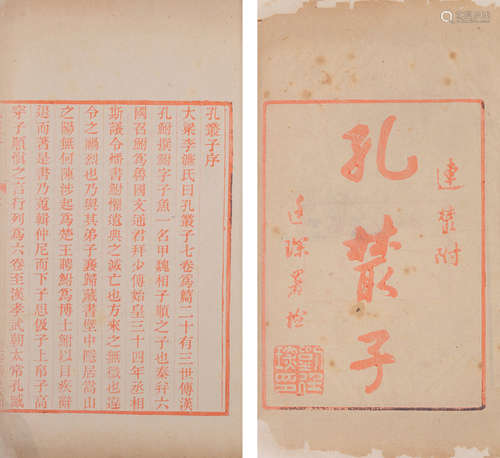 孔叢子序
大梁李濂氏曰孔叢子七卷爲篇二十有三世傳漢
孔鮒撰鮒字子魚一名甲魏相子順之子也秦幷六
國召鮒爲魯國文通君拜少傅始皇三十四年丞相
斯議令燔書鮒懼遺典之滅亡也方來之無徵也違
令之賜烈也乃與其弟子襄歸藏書壁中隱居嵩山
之陽無何陳涉起爲楚王聘鮒爲博士鮒以目疾辭
退而著是書乃蒐輯仲尼而下子思伋子上帛子高
穿子順愼之言行列爲六卷至漢孝武朝太常孔臧
連叢附
孔叢子
廷琛署檢